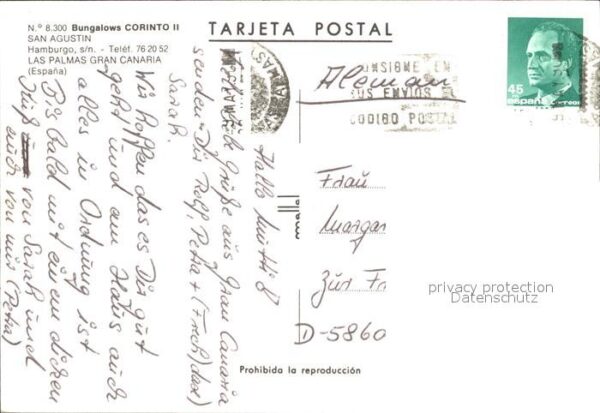 N.º 8.300 Bungalows CORINTO II
SAN AGUSTIN
Hamburgo, s/n. - Teléf. 76 20 52
LAS PALMAS GRAN CANARIA
(España)
TARJETA POSTAL
45
españa
CONSIGNE EN
SUS ENVIOS EL
CODIGO POSTAL
Alemania
Hallo Mutti!
Herzliche Grüße aus Gran Canaria
senden Dir Rolf, Petra +
Sarah.
Wir hoffen das es Dir gut
geht und am Haus auch
alles in Ordnung ist
Bis bald mit einem dicken
Kuß von Sarah und
auch von mir (Petra)
Frau
Margar
Zur Fr
D-5860
privacy protection
Datenschutz
Prohibida la reproducción